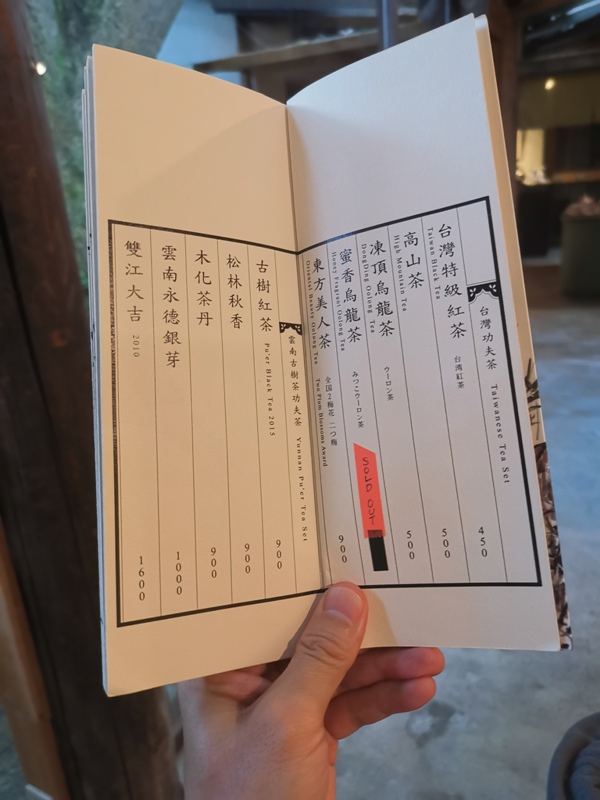 台灣功夫茶 Taiwanese Tea Set
台灣特級紅茶 台湾紅茶 450
Taiwan Black Tea
高山茶 500
High Mountain Tea
凍頂烏龍茶 ウーロン茶 500
DongDing Oolong Tea
蜜香烏龍茶 みつこウーロン茶
Honey Fragrant Oolong Tea
SOLD OUT
東方美人茶 全国2梅花 二つ梅 900
Oriental Beauty Oolong Tea Two Plum Blossoms Award
雲南古樹茶功夫茶 Yunnan Pu'er Tea Set
古樹紅茶 Pu'er Black Tea 2015 900
松林秋香 900
木化茶丹 900
雲南永德銀芽 1000
雙江大吉 2010 1600